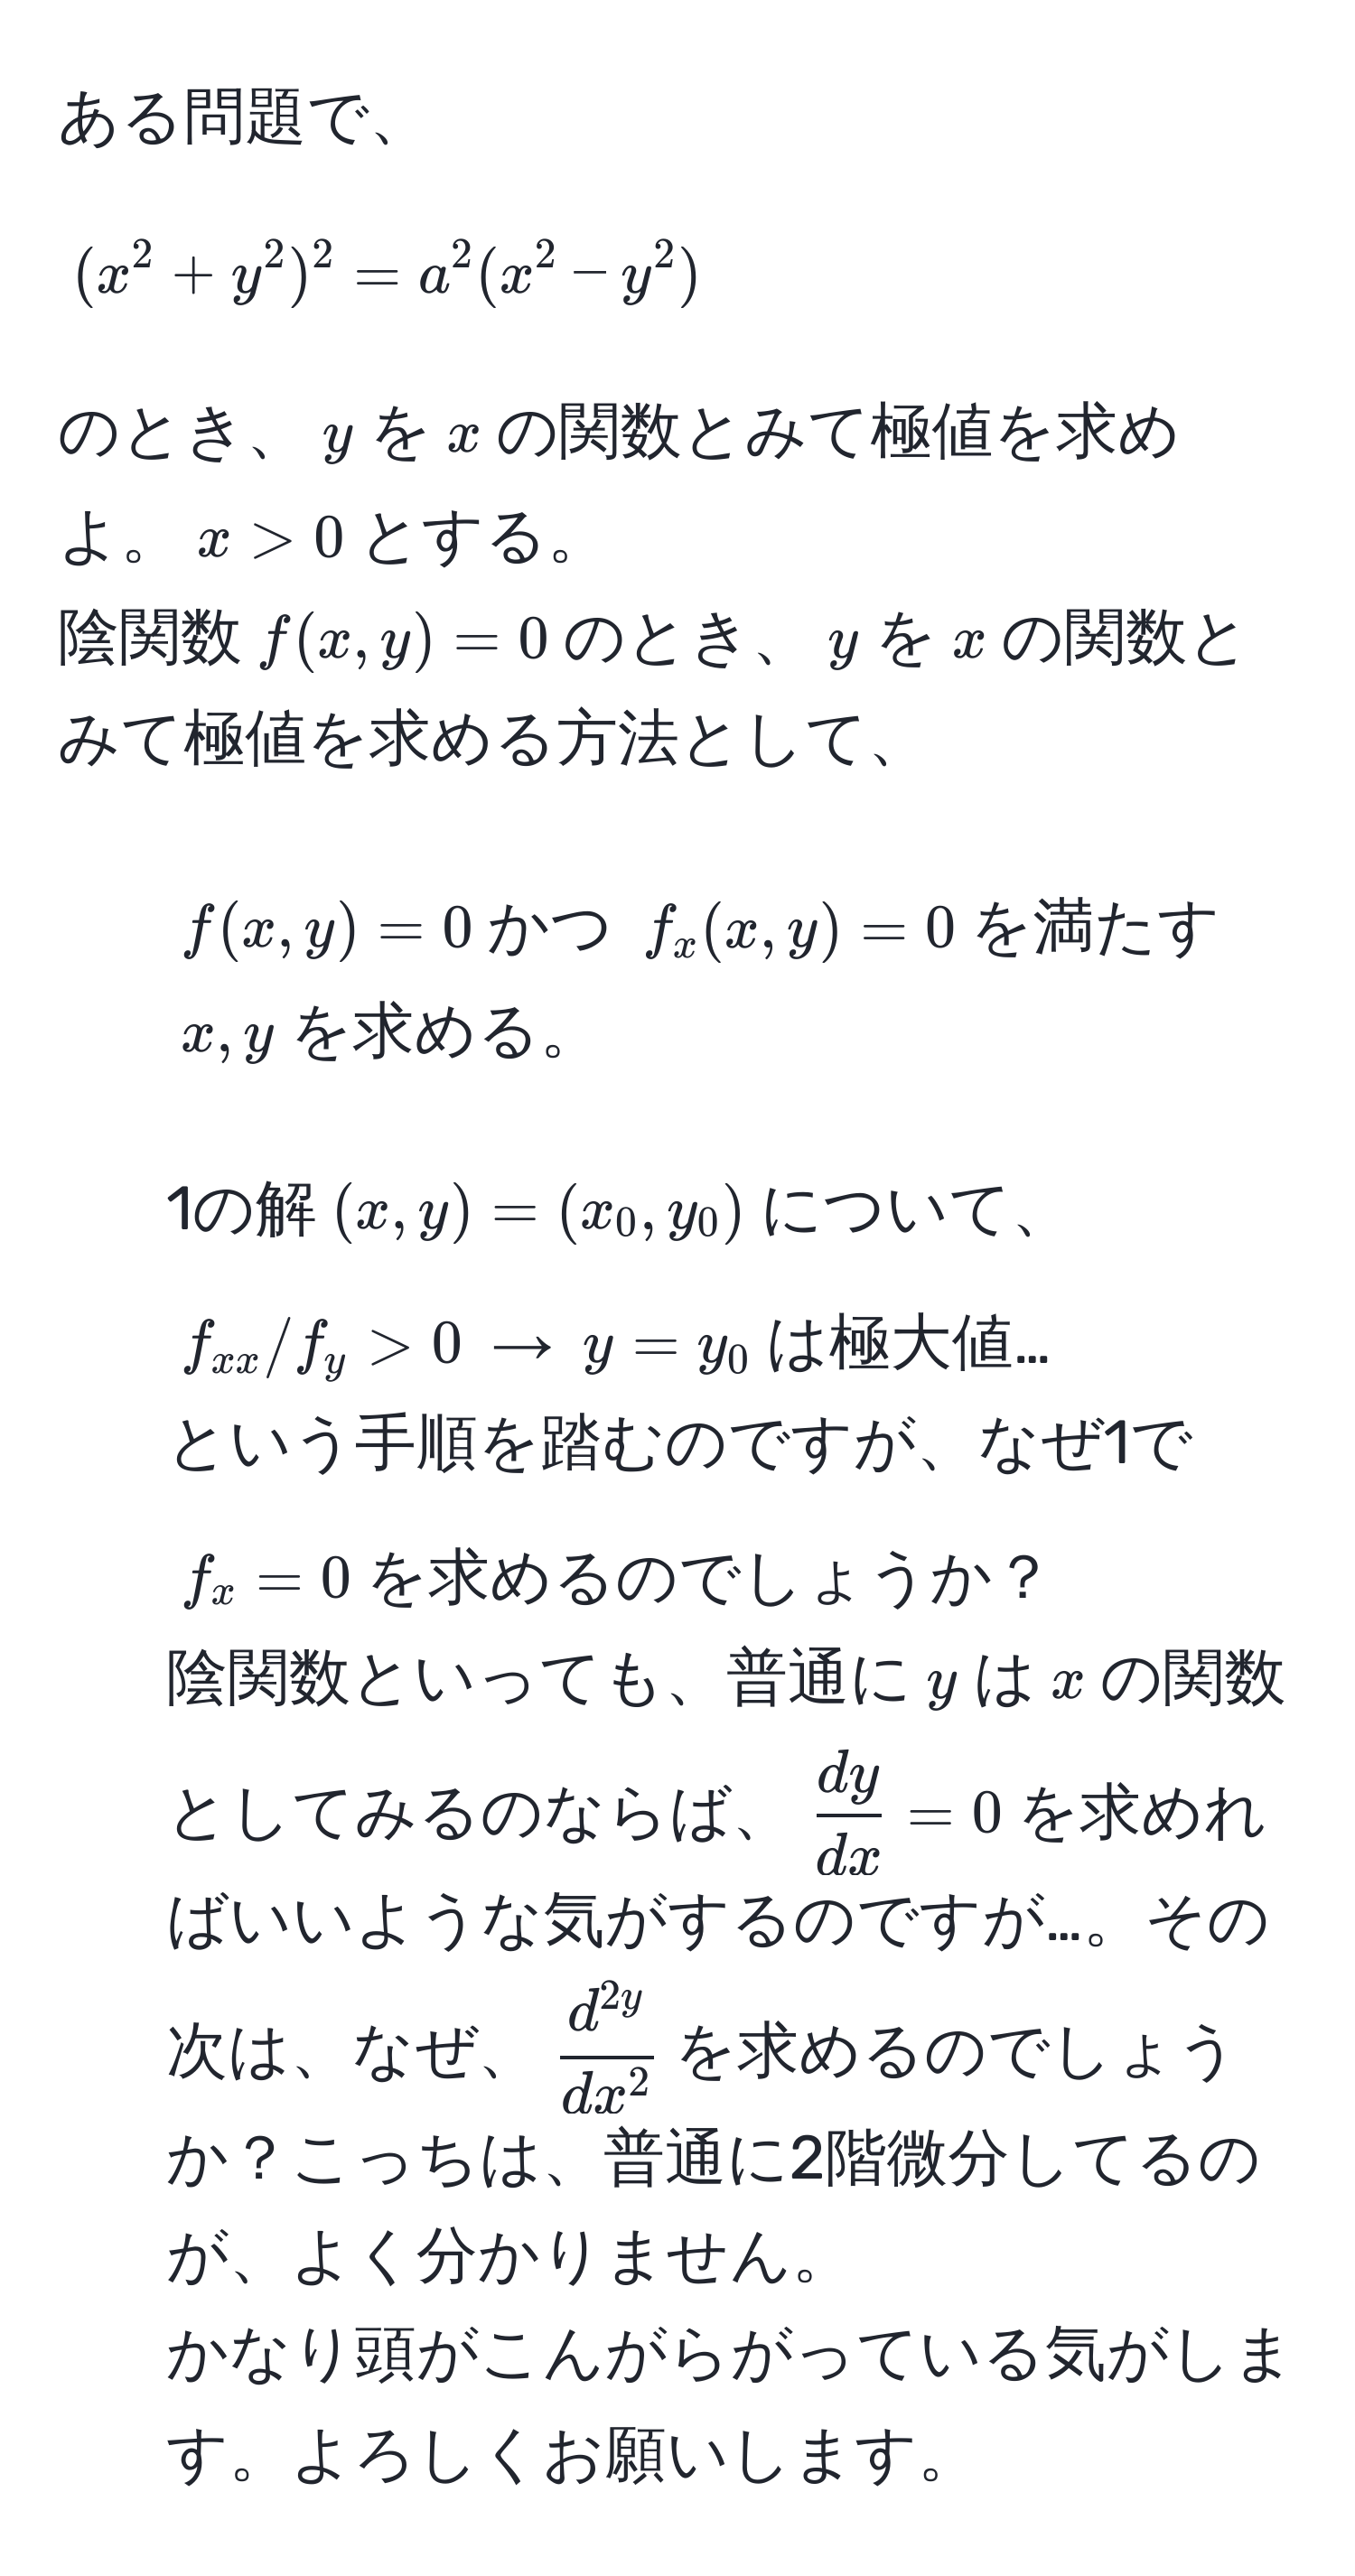 ある問題で、
(x² + y²)² = a²(x² − y²)
のとき、 y を x の関数とみて極値を求め
よ。 x > 0 とする。
陰関数 f(x, y) = 0 のとき、 y を x の関数と
みて極値を求める方法として、
f(x, y) = 0 かつ f_x(x, y) = 0 を満たす
x, y を求める。
1の解 (x, y) = (x₀, y₀) について、
f_{xx}/f_y > 0 → y = y₀ は極大値…
という手順を踏むのですが、なぜ1で
f_x = 0 を求めるのでしょうか？
陰関数といっても、普通に y は x の関数
としてみるのならば、 \frac{dy}{dx} = 0 を求めれ
ばいいような気がするのですが…。その
次は、なぜ、 \frac{d^{2y}}{dx^2} を求めるのでしょう
か？こっちは、普通に2階微分してるの
が、よく分かりません。
かなり頭がこんがらがっている気がしま
す。よろしくお願いします。